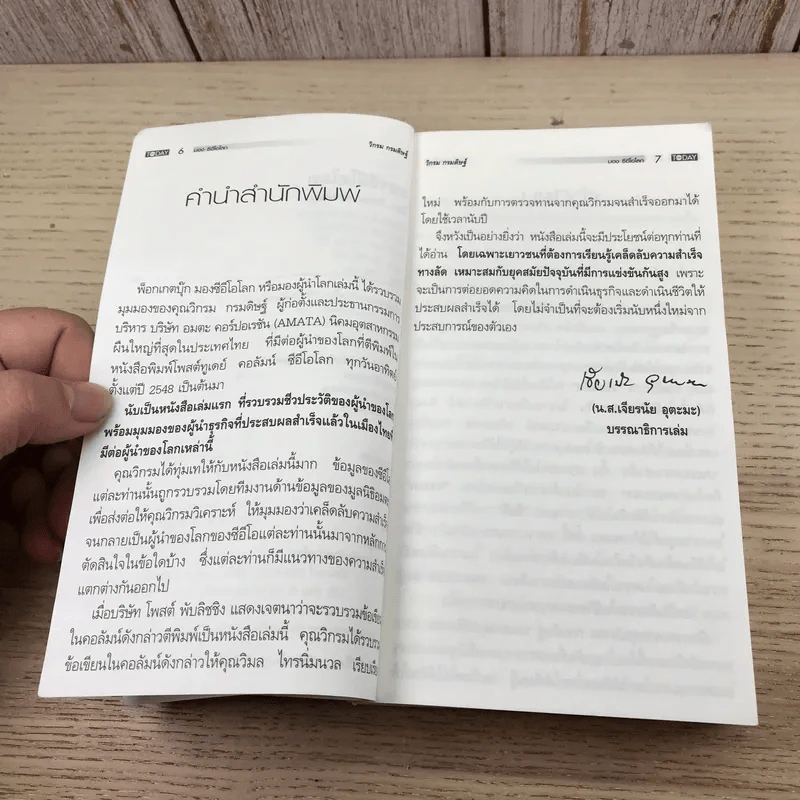 TODAY 6 มอง ซีอีโอโลก วิกรม กรมดิษฐ์
คำนำสำนักพิมพ์
พ็อกเกตบุ๊ก มองซีอีโอโลก หรือมองผู้นำโลกเล่มนี้ ได้รวบรวม
มุมมองของคุณวิกรม กรมดิษฐ์ ผู้ก่อตั้งและประธานกรรมการ
บริหาร บริษัท อมตะ คอร์ปอเรชัน (AMATA) นิคมอุตสาหกรรม
ผืนใหญ่ที่สุดในประเทศไทย ที่มีต่อผู้นำของโลกที่ตีพิมพ์ใน
หนังสือพิมพ์โพสต์ทูเดย์ คอลัมน์ ซีอีโอโลก ทุกวันอาทิตย์
ตั้งแต่ปี 2548 เป็นต้นมา
นับเป็นหนังสือเล่มแรก ที่รวบรวมชีวประวัติของผู้นำของโลก
พร้อมมุมมองของผู้นำธุรกิจที่ประสบผลสำเร็จแล้วในเมืองไทย
มีต่อผู้นำของโลกเหล่านี้
คุณวิกรมได้ทุ่มเทให้กับหนังสือเล่มนี้มาก ข้อมูลของซีอีโอ
แต่ละท่านนั้นถูกรวบรวมโดยทีมงานด้านข้อมูลของมูลนิธิอมตะ
เพื่อส่งต่อให้คุณวิกรมวิเคราะห์ ให้มุมมองว่าเคล็ดลับความสำเร็จ
จนกลายเป็นผู้นำของโลกของซีอีโอแต่ละท่านนั้นมาจากหลักการ
ตัดสินใจในข้อใดบ้าง ซึ่งแต่ละท่านก็มีแนวทางของความสำเร็จ
แตกต่างกันออกไป
เมื่อบริษัท โพสต์ พับลิชชิง แสดงเจตนาว่าจะรวบรวมข้อเขียน
ในคอลัมน์ดังกล่าวตีพิมพ์เป็นหนังสือเล่มนี้ คุณวิกรมได้รวบรวม
ข้อเขียนในคอลัมน์ดังกล่าวให้คุณวิมล ไทรนิ่มนวล เรียบเรียง
วิกรม กรมดิษฐ์ มอง ซีอีโอโลก 7 TODAY
ใหม่ พร้อมกับการตรวจทานจากคุณวิกรมจนสำเร็จออกมาได้
โดยใช้เวลานับปี
จึงหวังเป็นอย่างยิ่งว่า หนังสือเล่มนี้จะมีประโยชน์ต่อทุกท่านที่
ได้อ่าน โดยเฉพาะเยาวชนที่ต้องการเรียนรู้เคล็ดลับความสำเร็จ
ทางลัด เหมาะสมกับยุคสมัยปัจจุบันที่มีการแข่งขันกันสูง เพราะ
จะเป็นการต่อยอดความคิดในการดำเนินธุรกิจและดำเนินชีวิตให้
ประสบผลสำเร็จได้ โดยไม่จำเป็นที่จะต้องเริ่มนับหนึ่งใหม่จาก
ประสบการณ์ของตัวเอง
(น.ส.เจียรนัย อุตะมะ)
บรรณาธิการเล่ม